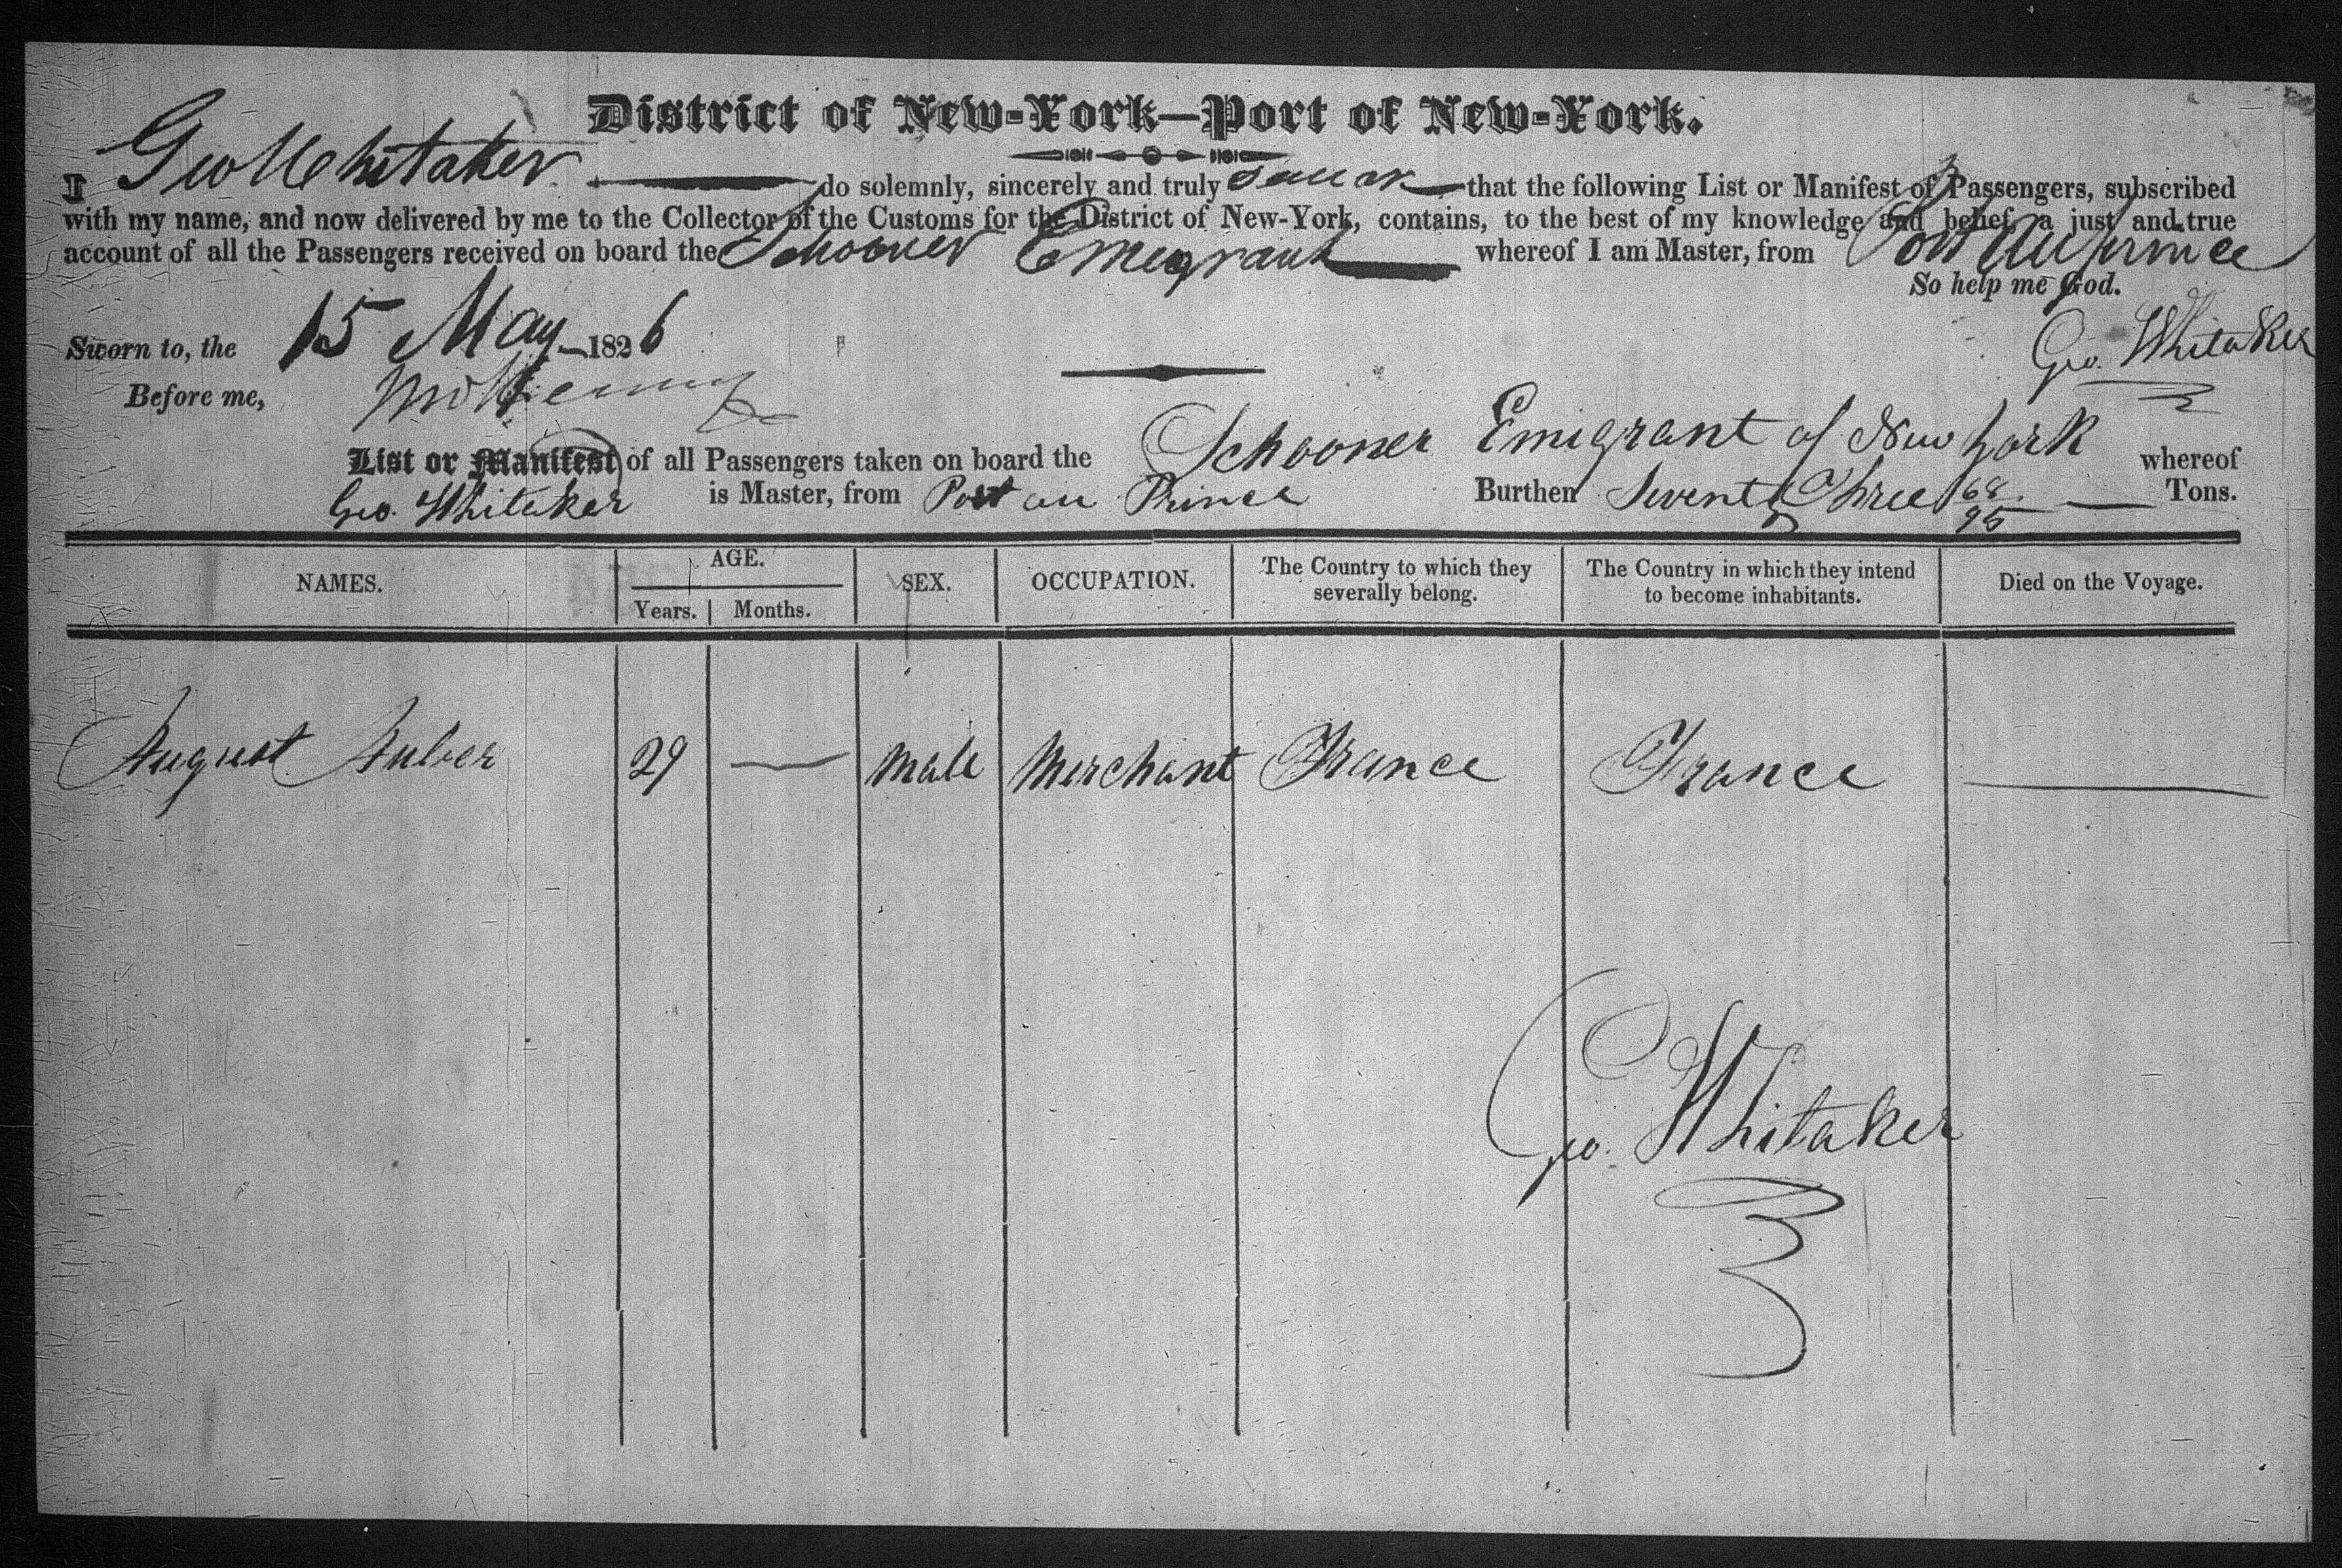 District of New-York—Port of New-York.
I Geo Whitaker do solemnly, sincerely and truly swear that the following List or Manifest of Passengers, subscribed
with my name, and now delivered by me to the Collector of the Customs for the District of New-York, contains, to the best of my knowledge and belief, a just and true
account of all the Passengers received on board the Schooner Emegrant whereof I am Master, from Port Au Prince
So help me God.
Sworn to, the 15 May 1826
Geo. Whitaker
Before me,
List or Manifest of all Passengers taken on board the Schooner Emigrant of New York whereof
Geo. Whitaker is Master, from Port au Prince Burthen Seventy Three 68/95 Tons.
NAMES. AGE. SEX. OCCUPATION. The Country to which they severally belong. The Country in which they intend to become inhabitants. Died on the Voyage.
Years. Months.
August Auber 29 — male Merchant France France —
Geo. Whitaker